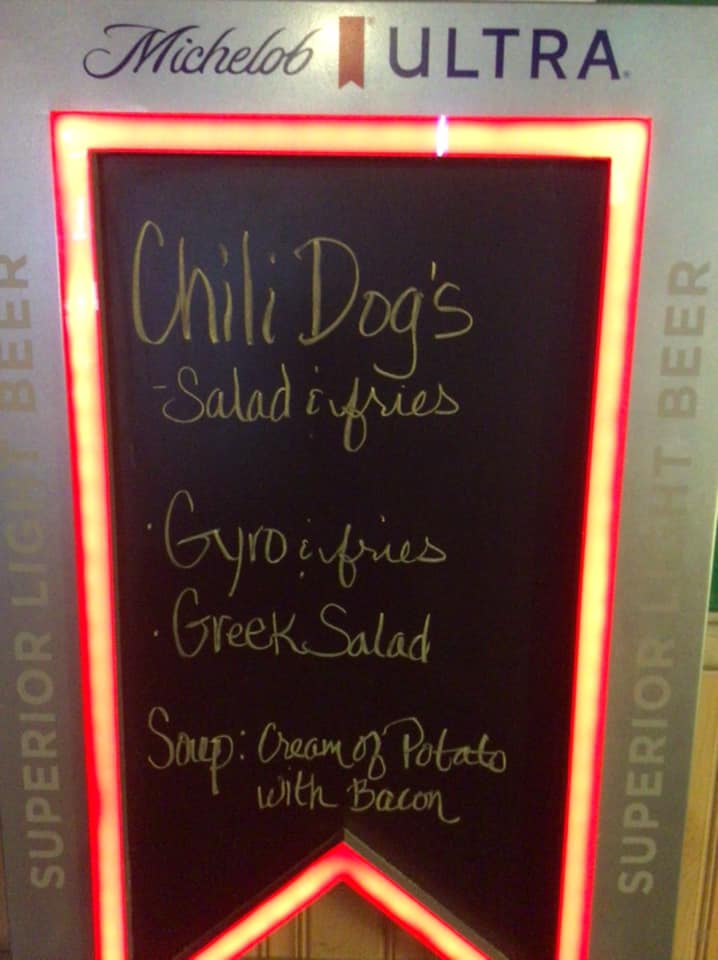 Michelob ULTRA
Chili Dog's
-Salad & fries
· Gyro & fries
· Greek Salad
Soup: Cream of Potato
with Bacon
SUPERIOR LIGHT BEER
SUPERIOR LIGHT BEER